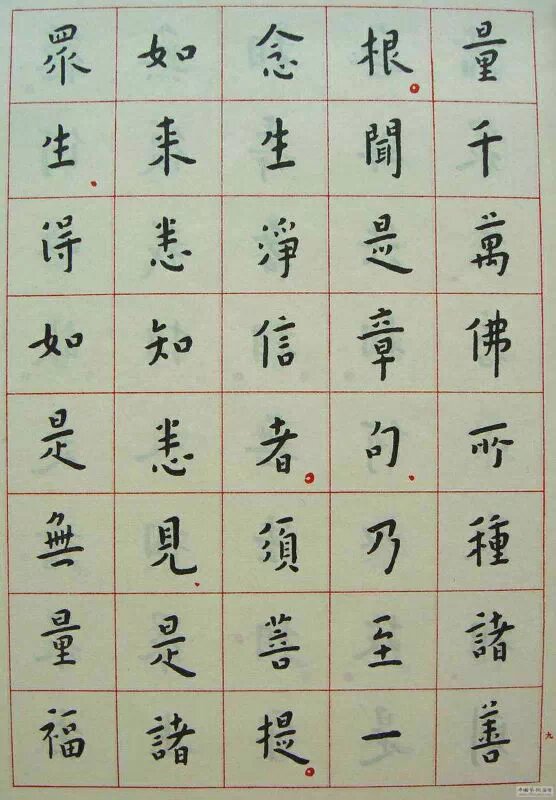 量千萬佛所種諸善
根。聞是章句、乃至一
念生淨信者。須菩提。
如来悉知悉見、是諸
眾生、得如是無量福
九